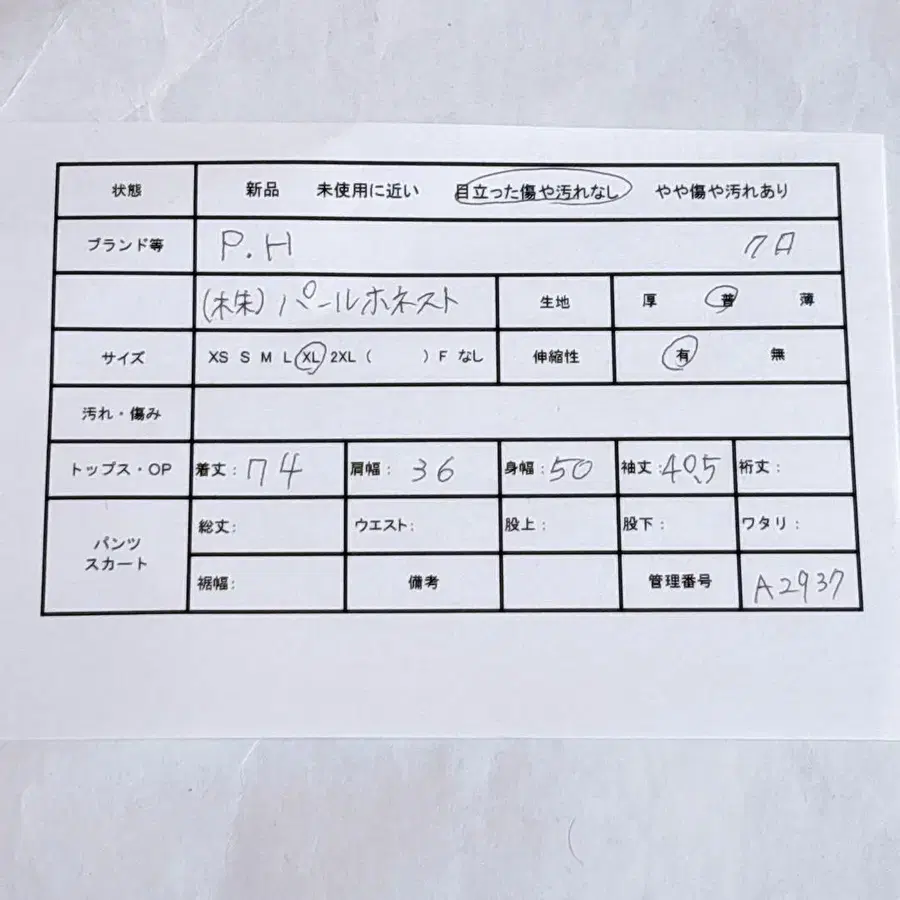 状態 新品 未使用に近い 目立った傷や汚れなし やや傷や汚れあり
ブランド等 P.H
(株)パールホネスト 生地 厚 普 薄
サイズ XS S M L XL 2XL ( ) F なし 伸縮性 有 無
汚れ・傷み
トップス・OP 着丈:74 肩幅:36 身幅:50 袖丈:40.5 裄丈:
パンツ スカート 総丈: ウエスト: 股上: 股下: ワタリ:
裾幅: 備考 管理番号 A2937